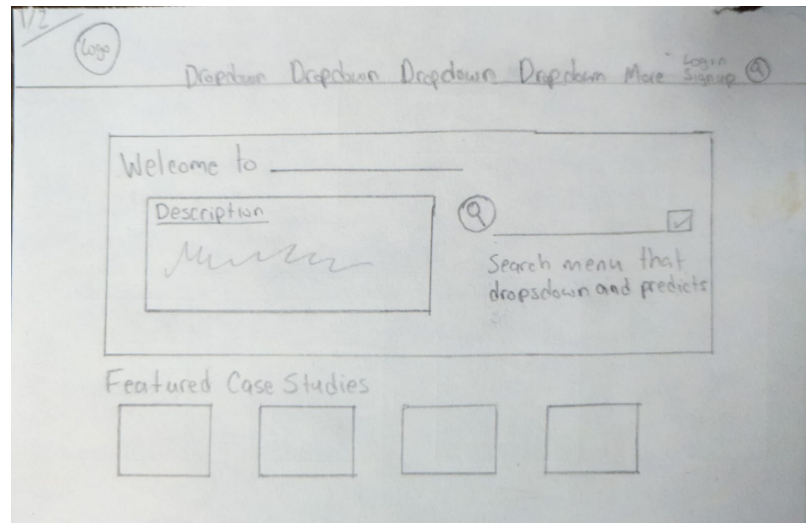 1/2
Logo
Dropdown Dropdown Dropdown Dropdown More Login
Signup
Welcome to
Description
Search menu that
dropsdown and predicts
Featured Case Studies